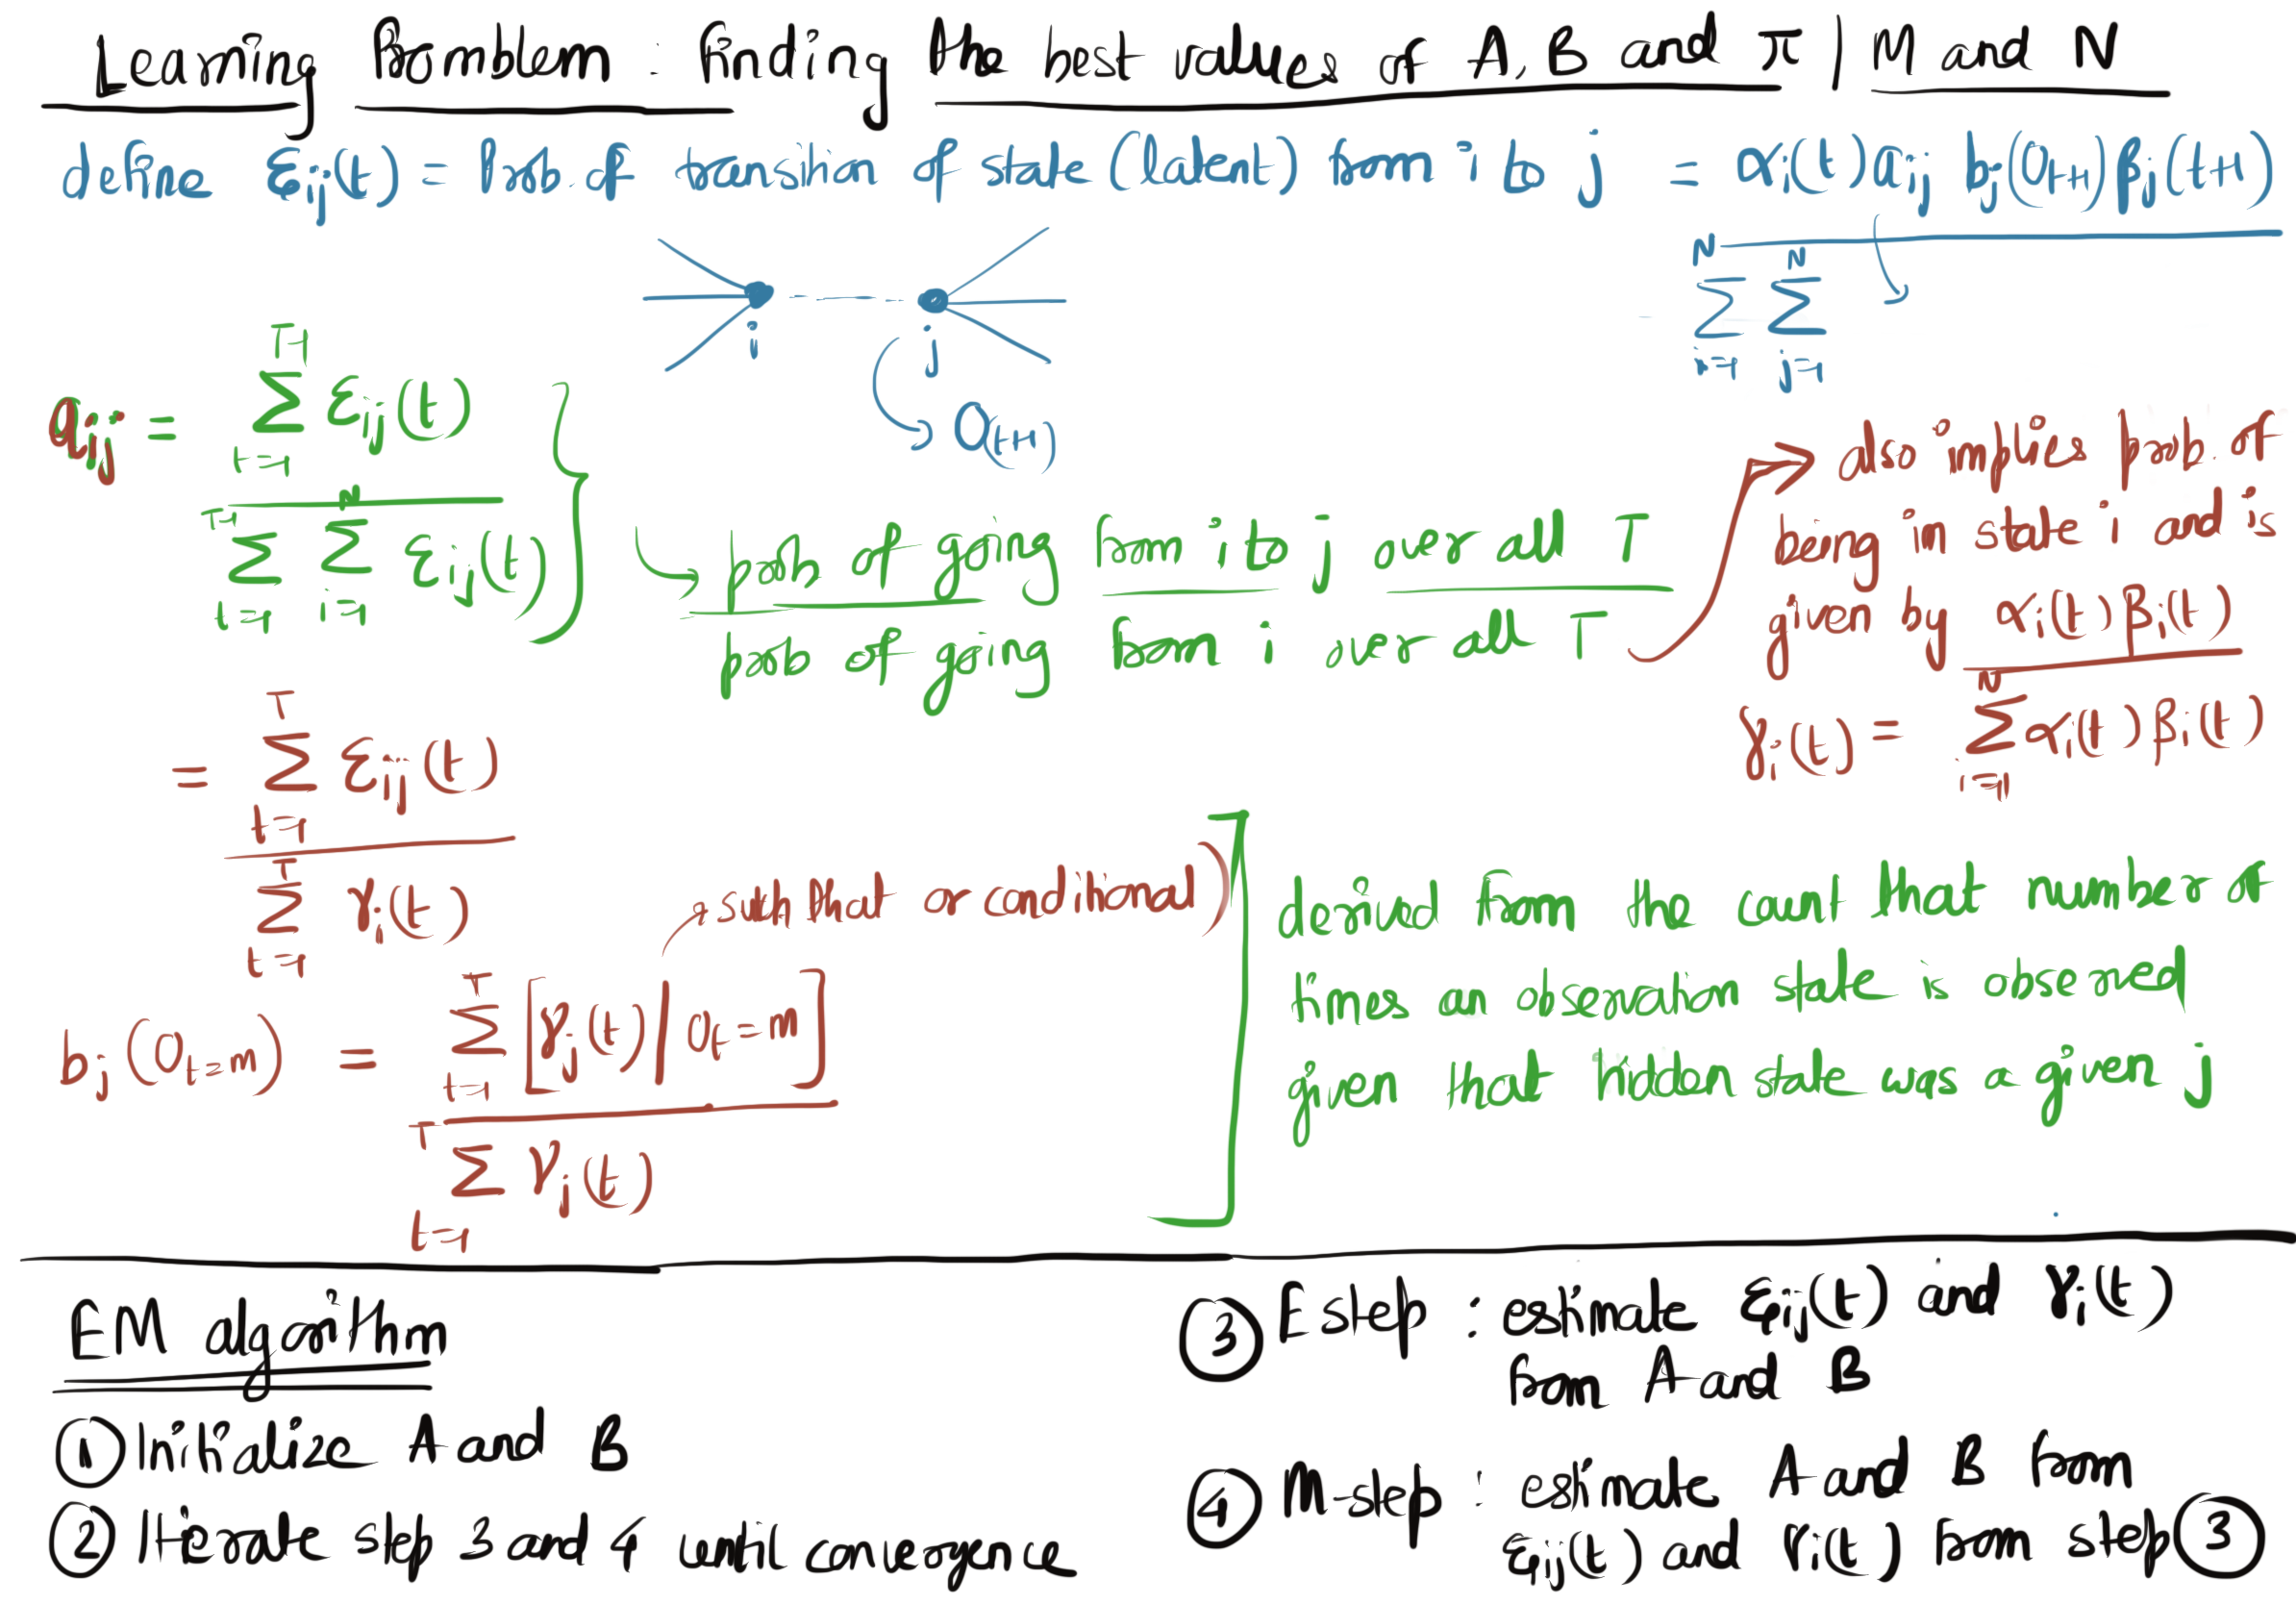 Learning Promblem : finding the best values of A, B and π | M and N
define ξij(t) = Prob. of transition of state (latent) from i to j = αi(t) aij bj(Ot+1) βj(t+1)
N N
Σ Σ
i=1 j=1
i j
O(t+1)
T-1
aij = Σ ξij(t)
t=1
T-1 N
Σ Σ ξij(t)
t=1 i=1
prob of going from i to j over all T
prob of going from i over all T
also implies prob. of
being in state i and is
given by αi(t) βi(t)
N
γi(t) = Σ αi(t) βi(t)
i=1
T
= Σ ξij(t)
t=1
T
Σ γi(t)
t=1
such that or conditional)
T
bj(Ot=m) = Σ [γj(t) | Ot=m]
t=1
T
Σ γj(t)
t=1
derived from the count that number of
times an observation state is observed
given that hidden state was a given j
EM algorithm
① Initialize A and B
② Iterate step 3 and 4 until convergence
③ E step : estimate ξij(t) and γi(t)
from A and B
④ M-step : estimate A and B from
ξij(t) and γi(t) from step ③